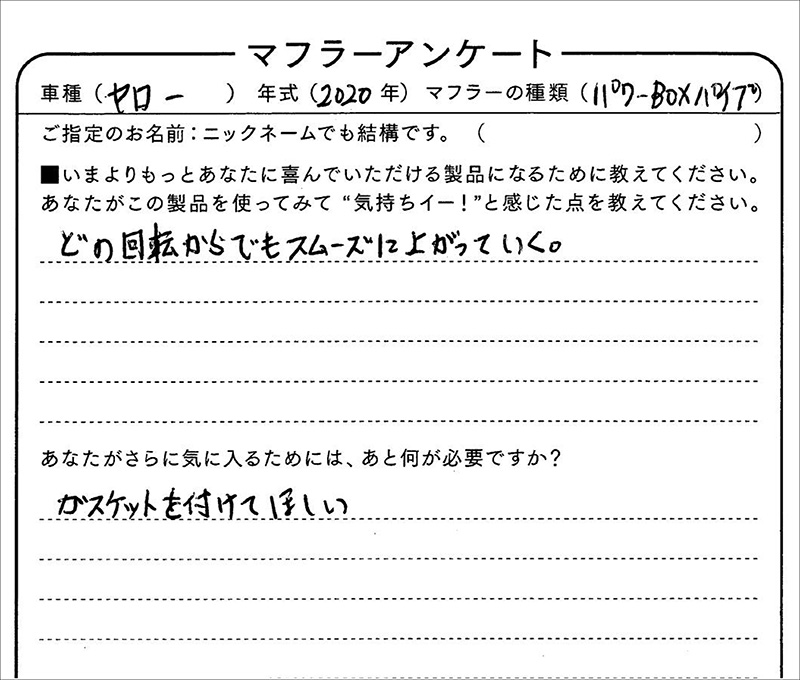 マフラーアンケート
車種(セロー) 年式(2020年) マフラーの種類(パワーBOXパイプ)
ご指定のお名前:ニックネームでも結構です。( )
■いまよりもっとあなたに喜んでいただける製品になるために教えてください。
あなたがこの製品を使ってみて“気持ちイー!”と感じた点を教えてください。
どの回転からでもスムーズに上がっていく。
あなたがさらに気に入るためには、あと何が必要ですか?
ガスケットを付けてほしい